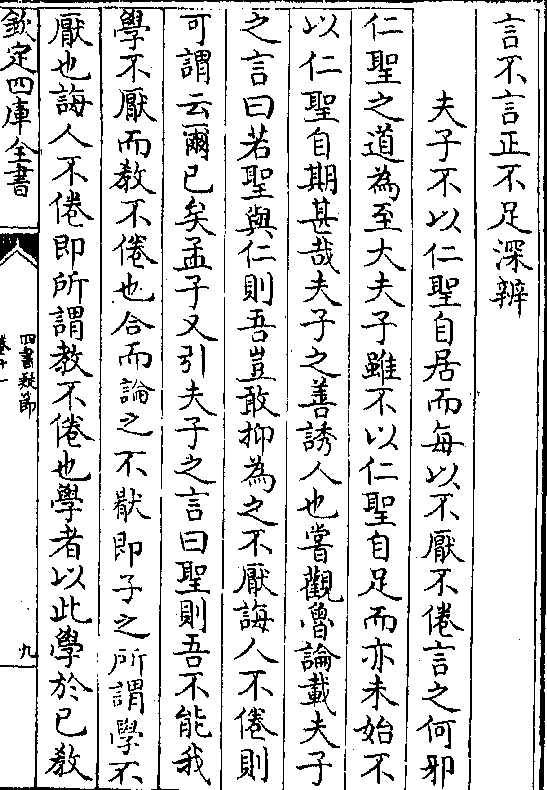 言不言正不足深辨
夫子不以仁聖自居而每以不厭不倦言之何邪
仁聖之道為至大夫子雖不以仁聖自足而亦未始不
以仁聖自期甚哉夫子之善誘人也嘗觀魯論載夫子
之言曰若聖與仁則吾豈敢抑為之不厭誨人不倦則
可謂云爾已矣孟子又引夫子之言曰聖則吾不能我
學不厭而教不倦也合而論之不厭即子之所謂學不
厭也誨人不倦即所謂教不倦也學者以此學於己教
欽定四庫全書
四書疑節
卷十一
九